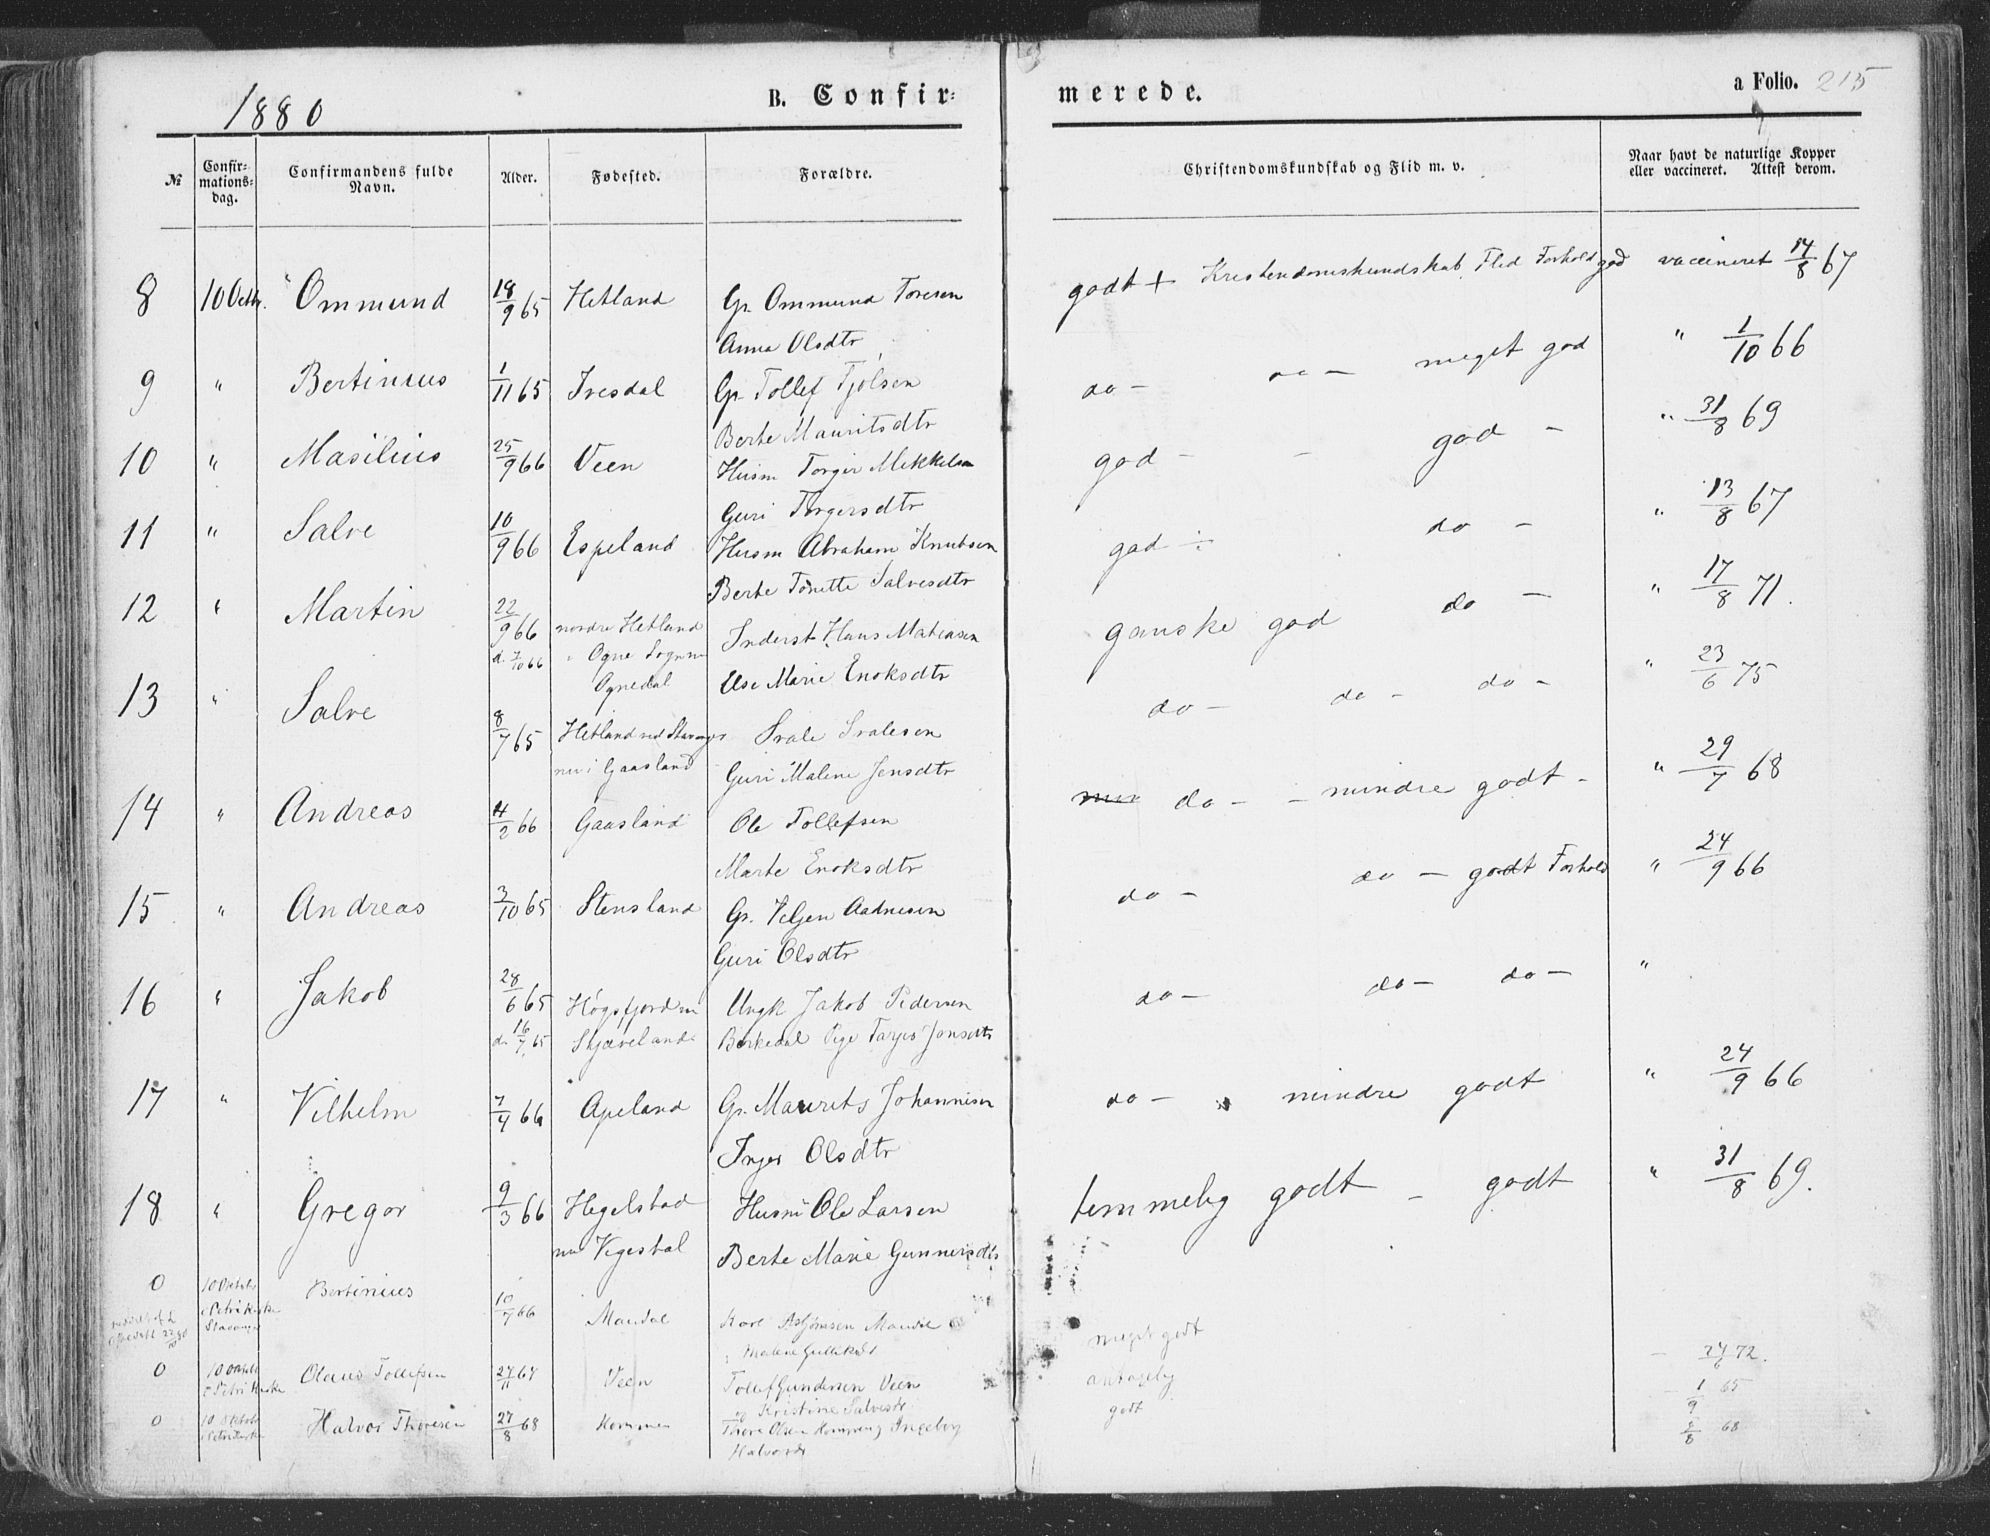 1880
B. Confir-
merede.
a Folio. 215
№
Confir-
mations-
dag.
Confirmandens fulde
Navn.
Alder.
Fødested.
Forældre.
Christendomskundskab og Flid m. v.
Naar havt de naturlige Kopper
eller vaccineret. Attest derom.
8 10 Octbr. Ommund 18/9 65 Hetland Gr. Ommund Toresen godt + Kristendomskundskab, Flid Forhold god vaccineret 14/8 67
Anna Olsdtr
9 " Bertinius 1/11 65 Ivesdal Gr. Tollef Tjølsen do - do - meget god " 1/10 66
Berte Mauritsdtr
10 " Masilius 25/9 66 Veen Husm Torger Mikkelsen god - - god - " 31/8 69
Guri Torgersdtr
11 " Salve 10/9 66 Espeland Husm Abraham Knudsen god ÷ do - " 13/8 67
Berte Tonette Salvesdtr
12 " Martin 22/9 66 nordre Hetland Inderst Hans Matiasen ganske god do - " 17/8 71.
d. 7/10 66 i Ogne Sogn nu
Ognedal Else Marie Enoksdtr
13 " Salve 8/7 65 Hetland ved Stavanger Svale Svalesen do - do - do - " 23/6 75
nu i Gaasland Guri Malene Jensdtr
14 " Andreas 4/2 66 Gaasland Ole Tollefsen do - - mindre godt - " 29/7 68
Marte Enoksdtr
15 " Andreas 3/10 65 Stensland Gr. Aadnesen do - do - godt Forhold " 24/9 66
Guri Olsdtr
16 " Jakob 28/6 65 Høgsfjord nu Ungk Jakob Pedersen do - do - do - "
d. 16/7 65 Skjæveland Birkedal Pige Jonsdtr
17 " Vilhelm 7/4 66 Apeland Gr. Maurits Johannesen do - mindre godt " 24/9 66
Inger Olsdtr
18 " Gregor 9/3 66 Hegelstad Husm Ole Larsen temmelig godt - godt " 31/8 69.
nu Vegestøl Berte Marie Gunnersdtr
0 10 Oktobr Bertinius 10/7 66 Maudal Karl Asbjørnsen Maudal meget godt 27/6 72.
i Petri Kirke
Stavanger
Malene
0 10 Oktobr Olaus Tollefsen 27/11 67 Veen Tollef Gundersen Veen antagelig 1/9 65
i Petri Kirke og Kristine Salvesdtr
0 10 Oktobr Halvor Thoresen 27/8 68 Hommen Thore Olsen Ingeborg godt /8 68
i Petri Kirke Halvorsdtr